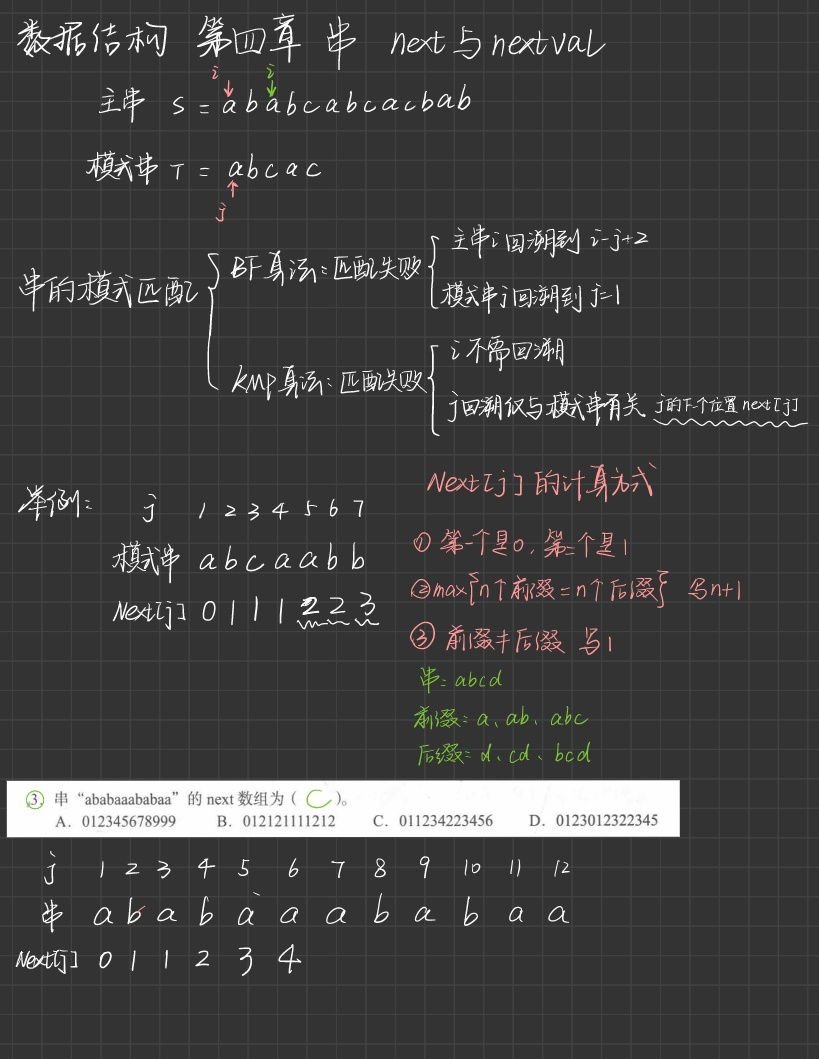 数据结构 第四章 串 next与nextval
i i
主串 S = ababcabcacbab
模式串 T = abcac
j
串的模式匹配
BF算法:匹配失败
主串i回溯到 i-j+2
模式串j回溯到 j=1
KMP算法:匹配失败
i不需回溯
j回溯仅与模式串有关 j的下个位置next[j]
举例: j 1 2 3 4 5 6 7
模式串 a b c a a b b
Next[j] 0 1 1 1 2 2 3
Next[j]的计算方式
① 第一个是0,第二个是1
②max{n个前缀=n个后缀} 写n+1
③ 前缀≠后缀 写1
串:abcd
前缀:a、ab、abc
后缀:d、cd、bcd
③. 串“ababaaababaa”的 next 数组为( C )。
A. 012345678999 B. 012121111212 C. 011234223456 D. 0123012322345
j 1 2 3 4 5 6 7 8 9 10 11 12
串 a b a b a a a b a b a a
Next[j] 0 1 1 2 3 4